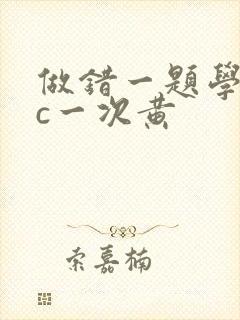 做錯一題學
c一次黃
索嘉楠